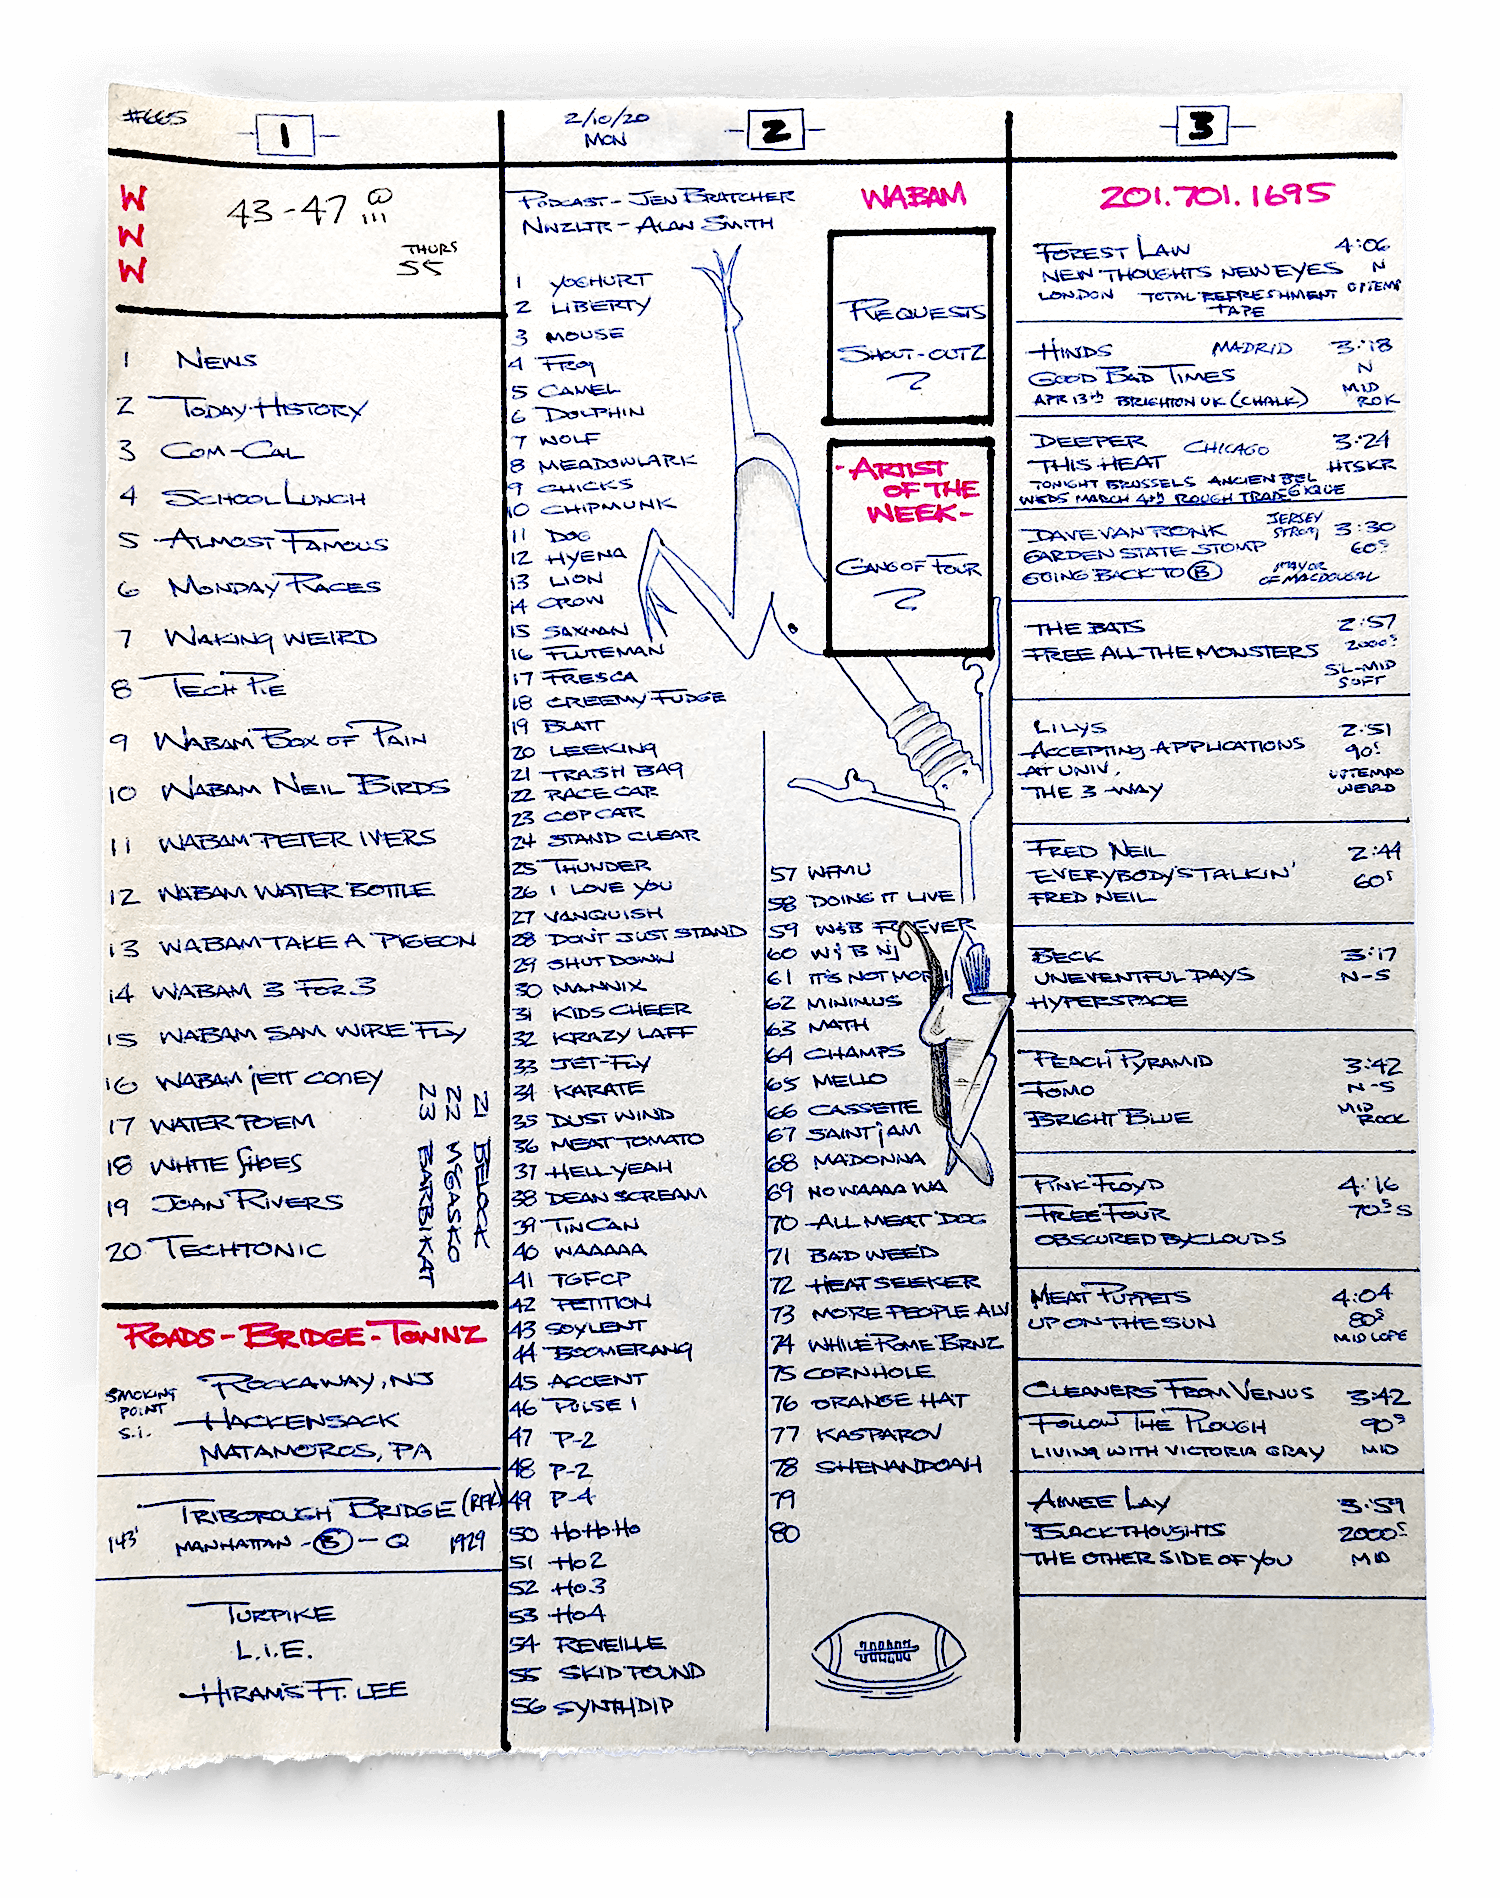 #665
1
2/10/20
MON
2
3
W
W
W
43-47 @
THURS
55
1 NEWS
2 TODAY HISTORY
3 COM-CAL
4 SCHOOL LUNCH
5 ALMOST FAMOUS
6 MONDAY RACES
7 WAKING WEIRD
8 TECH PIE
9 WABAM BOX OF PAIN
10 WABAM NEIL BIRDS
11 WABAM PETER IVERS
12 WABAM WATER BOTTLE
13 WABAM TAKE A PIGEON
14 WABAM 3 FOR 3
15 WABAM SAM WIRE FLY
16 WABAM JETT CONEY
17 WATER POEM
18 WHITE SHOES
19 JOAN RIVERS
20 TECHTONIC
21 BELOCK
22 MSGASKO
23 BARBIKAT
ROADS-BRIDGE-TOWNZ
SMOKING
POINT
S.I.
ROCKAWAY, NJ
HACKENSACK
MATAMOROS, PA
TRIBOROUGH BRIDGE (RFK)
143'
MANHATTAN - B - Q 1929
TURPIKE
L.I.E.
HIRAMS FT. LEE
PODCAST - JEN BRATCHER
NWZLTR - ALAN SMITH
1 YOGHURT
2 LIBERTY
3 MOUSE
4 FROG
5 CAMEL
6 DOLPHIN
7 WOLF
8 MEADOWLARK
9 CHICKS
10 CHIPMUNK
11 DOG
12 HYENA
13 LION
14 CROW
15 SAXMAN
16 FLUTEMAN
17 FRESCA
18 CREEMY FUDGE
19 BLATT
20 LEEKING
21 TRASH BAG
22 RACE CAR
23 COP CAR
24 STAND CLEAR
25 THUNDER
26 I LOVE YOU
27 VANQUISH
28 DON'T JUST STAND
29 SHUT DOWN
30 MANNIX
31 KIDS CHEER
32 KRAZY LAFF
33 JET-FLY
34 KARATE
35 DUST WIND
36 MEAT TOMATO
37 HELL YEAH
38 DEAN SCREAM
39 TIN CAN
40 WAAAAA
41 TGFCP
42 PETITION
43 SOYLENT
44 BOOMERANG
45 ACCENT
46 PULSE 1
47 P-2
48 P-2
49 P-4
50 HO HO HO
51 HO 2
52 HO 3
53 HO 4
54 REVEILLE
55 SKID POUND
56 SYNTH DIP
WABAM
REQUESTS
SHOUT-OUTZ
?
-ARTIST
OF THE
WEEK-
GANG OF FOUR
?
57 WFMU
58 DOING IT LIVE
59 W&B FOREVER
60 W&B NJ
61 IT'S NOT MOR
62 MINIMUS
63 MATH
64 CHAMPS
65 MELLO
66 CASSETTE
67 SAINT JAM
68 MADONNA
69 NO WAAAA WA
70 ALL MEAT DOG
71 BAD WEED
72 HEAT SEEKER
73 MORE PEOPLE ALV
74 WHILE ROME BRNZ
75 CORNHOLE
76 ORANGE HAT
77 KASPAROV
78 SHENANDOAH
79
80
201.701.1695
FOREST LAW 4:06
NEW THOUGHTS NEW EYES N
LONDON TOTAL REFRESHMENT UPTEMP
TAPE
HINDS MADRID 3:18
GOOD BAD TIMES N
APR 13th BRIGHTON UK (CHALK) MID ROK
DEEPER CHICAGO 3:24
THIS HEAT HTSKR
TONIGHT BRUSSELS ANCIEN BEL
WEDS MARCH 4th ROUGH TRADE GIQUE
DAVE VAN RONK JERSEY STRONG 3:30
GARDEN STATE STOMP 60s
GOING BACK TO B MAYOR OF MACDOUGAL
THE BATS 2:57
FREE ALL THE MONSTERS 2000s
SL-MID
SOFT
LILYS 2:51
ACCEPTING APPLICATIONS 90s
AT UNIV. UPTEMPO
THE 3 WAY WEIRD
FRED NEIL 2:44
EVERYBODY'S TALKIN' 60s
FRED NEIL
BECK 3:17
UNEVENTFUL DAYS N-S
HYPERSPACE
PEACH PYRAMID 3:42
TOMO N-S
BRIGHT BLUE MID ROCK
PINK FLOYD 4:16
FREE FOUR 70s S
OBSCURED BY CLOUDS
MEAT PUPPETS 4:04
UP ON THE SUN 80s
MID LOPE
CLEANERS FROM VENUS 3:42
FOLLOW THE PLOUGH 90s
LIVING WITH VICTORIA GRAY MID
AIMEE LAY 3:59
BLACK THOUGHTS 2000s
THE OTHER SIDE OF YOU MID